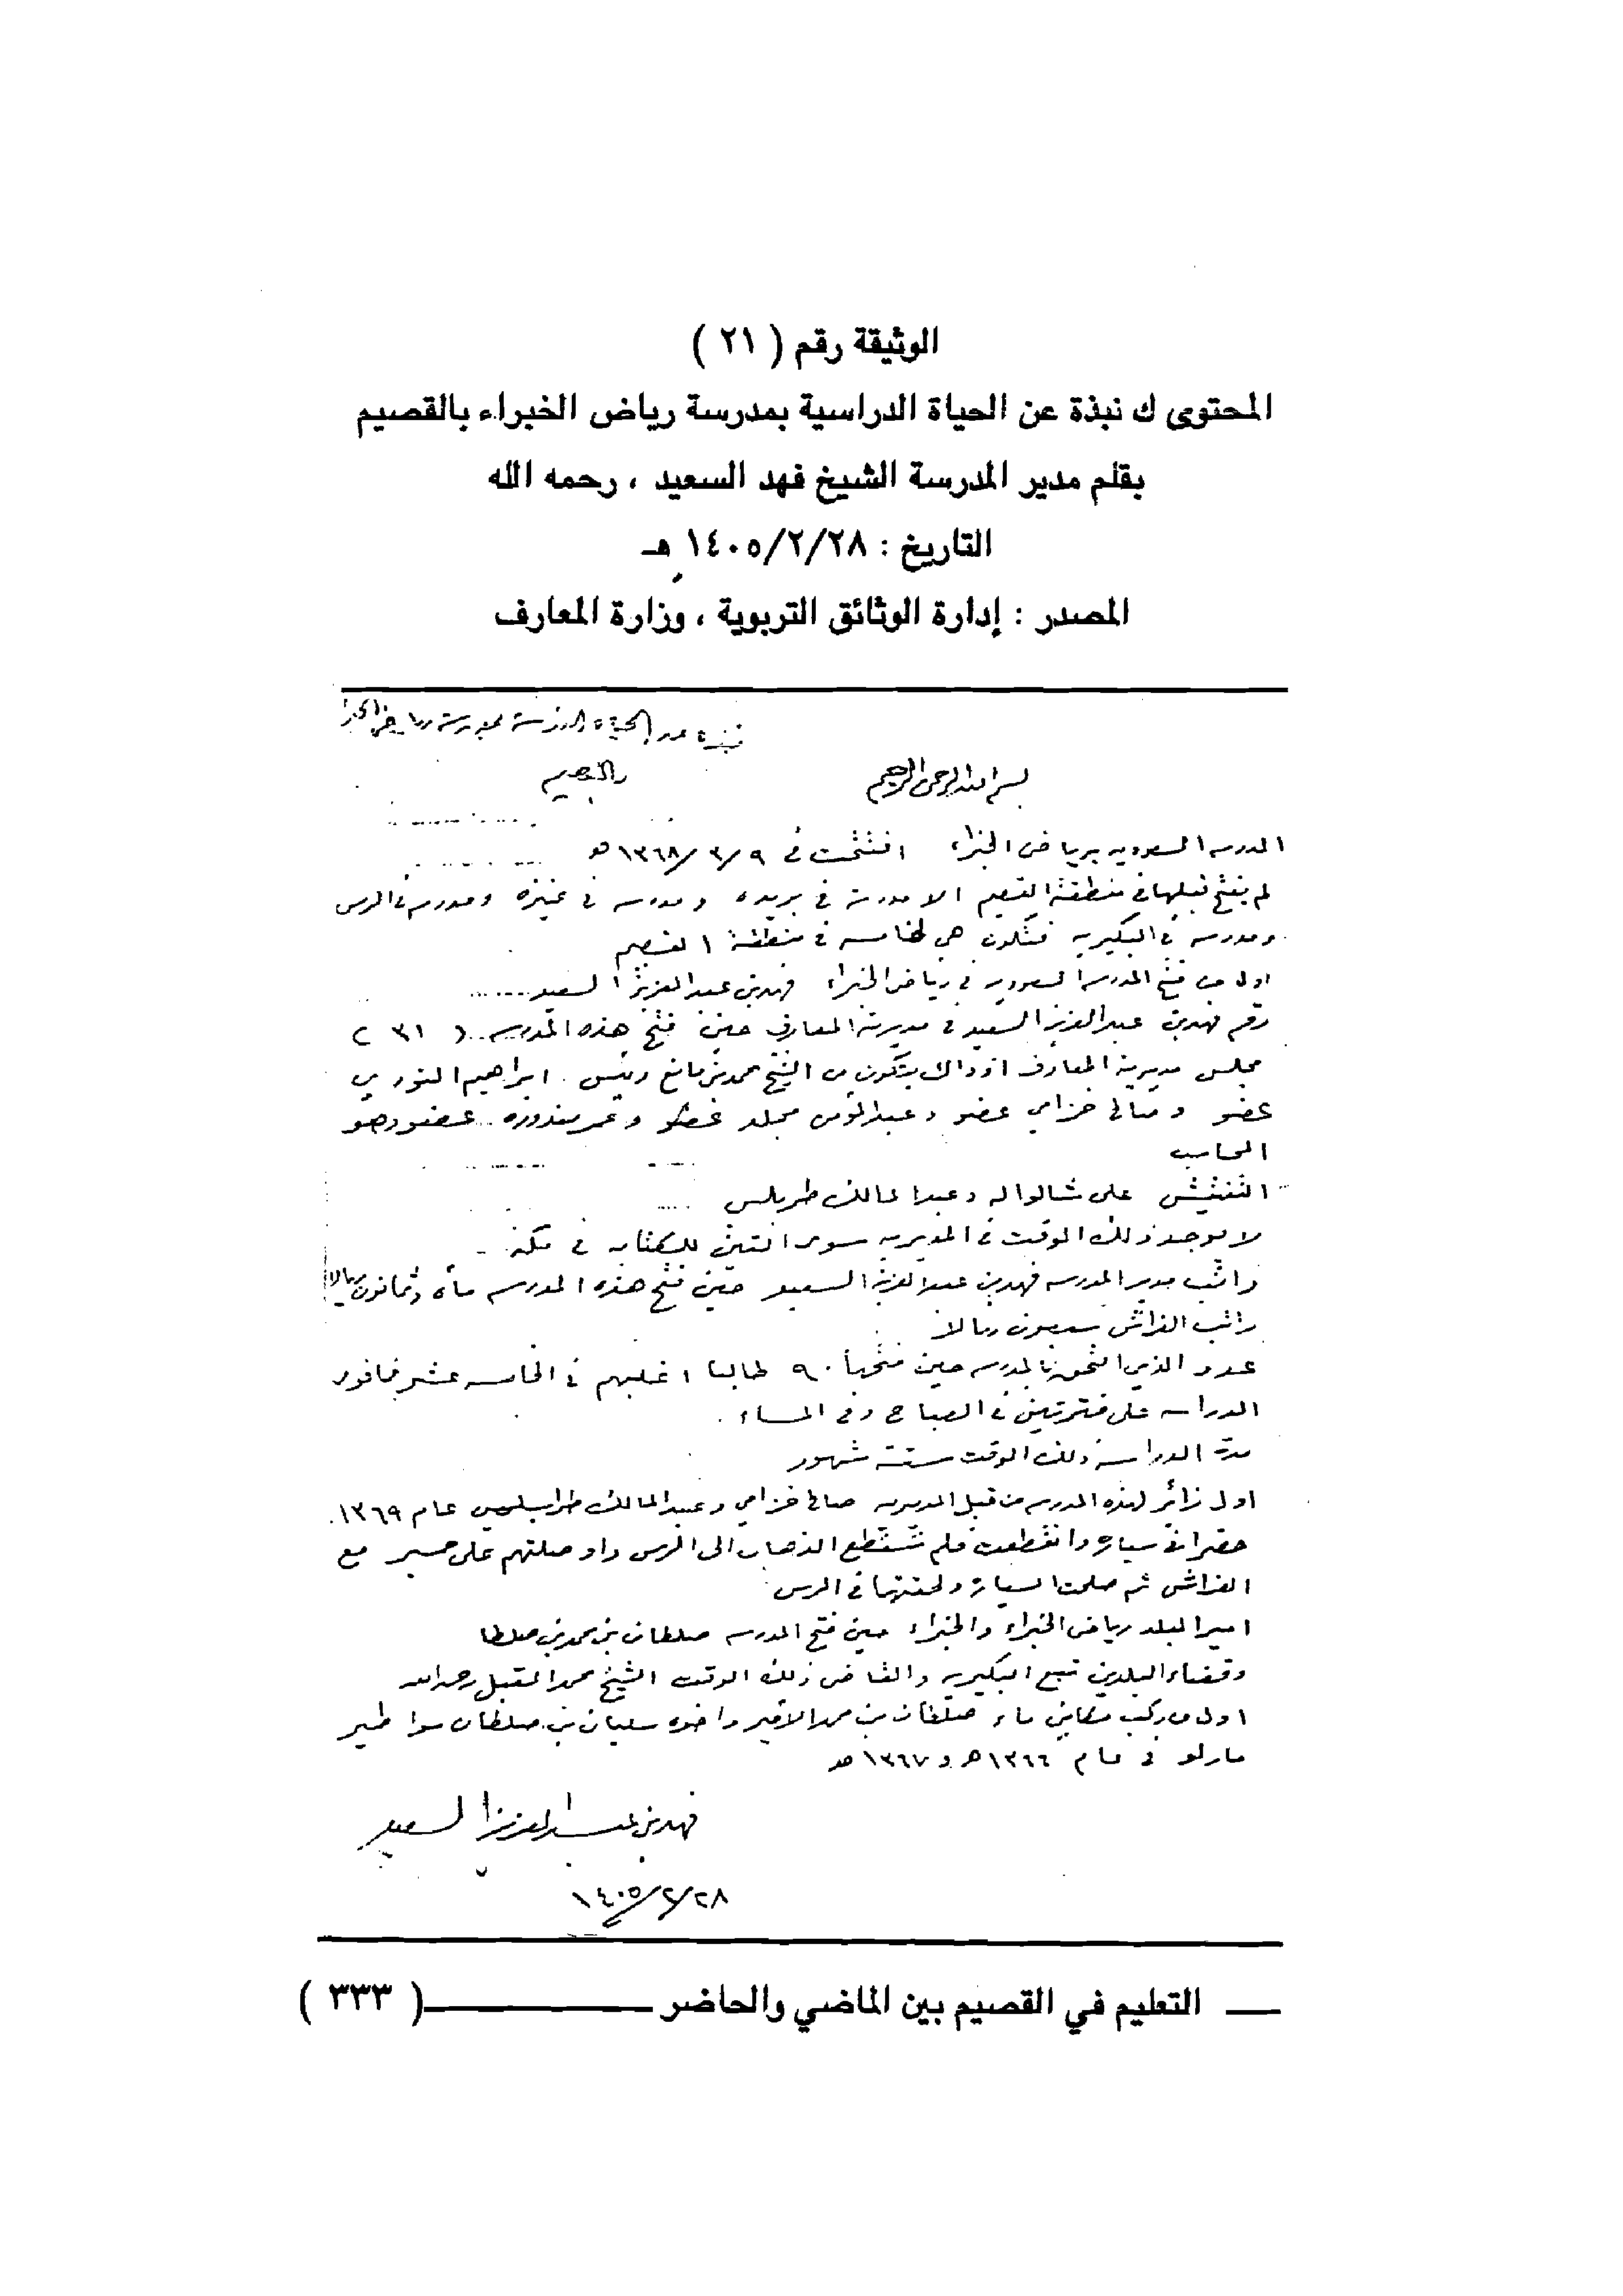 الوثيقة رقم ( ٢١ )
المحتوى ك نبذة عن الحياة الدراسية بمدرسة رياض الخبراء بالقصيم
بقلم مدير المدرسة الشيخ فهد السعيد ، رحمه الله
التاريخ : ١٤٠٥/٢/٢٨ هـ
المصدر : إدارة الوثائق التربوية ، وزارة المعارف
نبذة عن الحياة الدراسية بمدرسة رياض الخبراء
بالقصيم
بسم الله الرحمن الرحيم
المدرسه السعوديه برياض الخبراء افتتحت في ١٣٦٨/٣/٩ هـ
لم يفتح قبلها في منطقة القصيم الا مدرسة في بريده ومدرسه في عنيزه ومدرسه في الرس
ومدرسه في البكيريه فتكون هي الخامسه في منطقة القصيم
اول من فتح المدرسه السعوديه في رياض الخبراء فهد بن عبدالعزيز السعيد
رقم فهد بن عبدالعزيز السعيد في مديرية المعارف حين فتح هذه المدرسه ( ٣١ )
مجلس مديرية المعارف انذاك يتكون من الشيخ محمد بن مانع رئيس . ابراهيم النوري
عضو وصالح خزامي عضو وعبدالمؤمن مجلد عضو وعمر عضو وهو
المحاسب
التفتيش على وعبدالمالك طربلس
لا يوجد ذلك الوقت في المديريه سوى اثنين للكتابه في مكه
راتب مدير المدرسه فهد بن عبدالعزيز السعيد حين فتح هذه المدرسه مائة وثمانون ريالا
راتب الفراش سبعون ريالا
عدد الذين التحقوا بالمدرسه حين فتحها ٩٠ طالبا اغلبهم في الخامسه عشر فما فوق
الدراسه على فترتين في الصباح وفي المساء .
مدة الدراسة ذلك الوقت ستة شهور
اول زائر لهذه المدرسه من قبل المديريه صالح خزامي وعبدالمالك طرابلسي عام ١٣٦٩
حضرا في سياره وانقطعت فلم تستطع الذهاب الى الرس واوصلتهم على حمير مع
الفراش ثم صلحت السياره ولحقتهما في الرس
امير البلد رياض الخبراء والخبراء حين فتح المدرسه صلطان بن محمد بن صلطا
وقضاء البلدين تتبع البكيريه والقاضي ذلك الوقت الشيخ محمد المقبل رحمه الله
اول من ركب مكاين ماء صلطان بن محمد الامير واخوه سليمان بن صلطان
في عام ١٣٦٦ هـ و ١٣٦٧ هـ
فهد بن عبدالعزيز السعيد
١٤٠٥/٢/٢٨
التعليم في القصيم بين الماضي والحاضر ( ٣٣٣ )